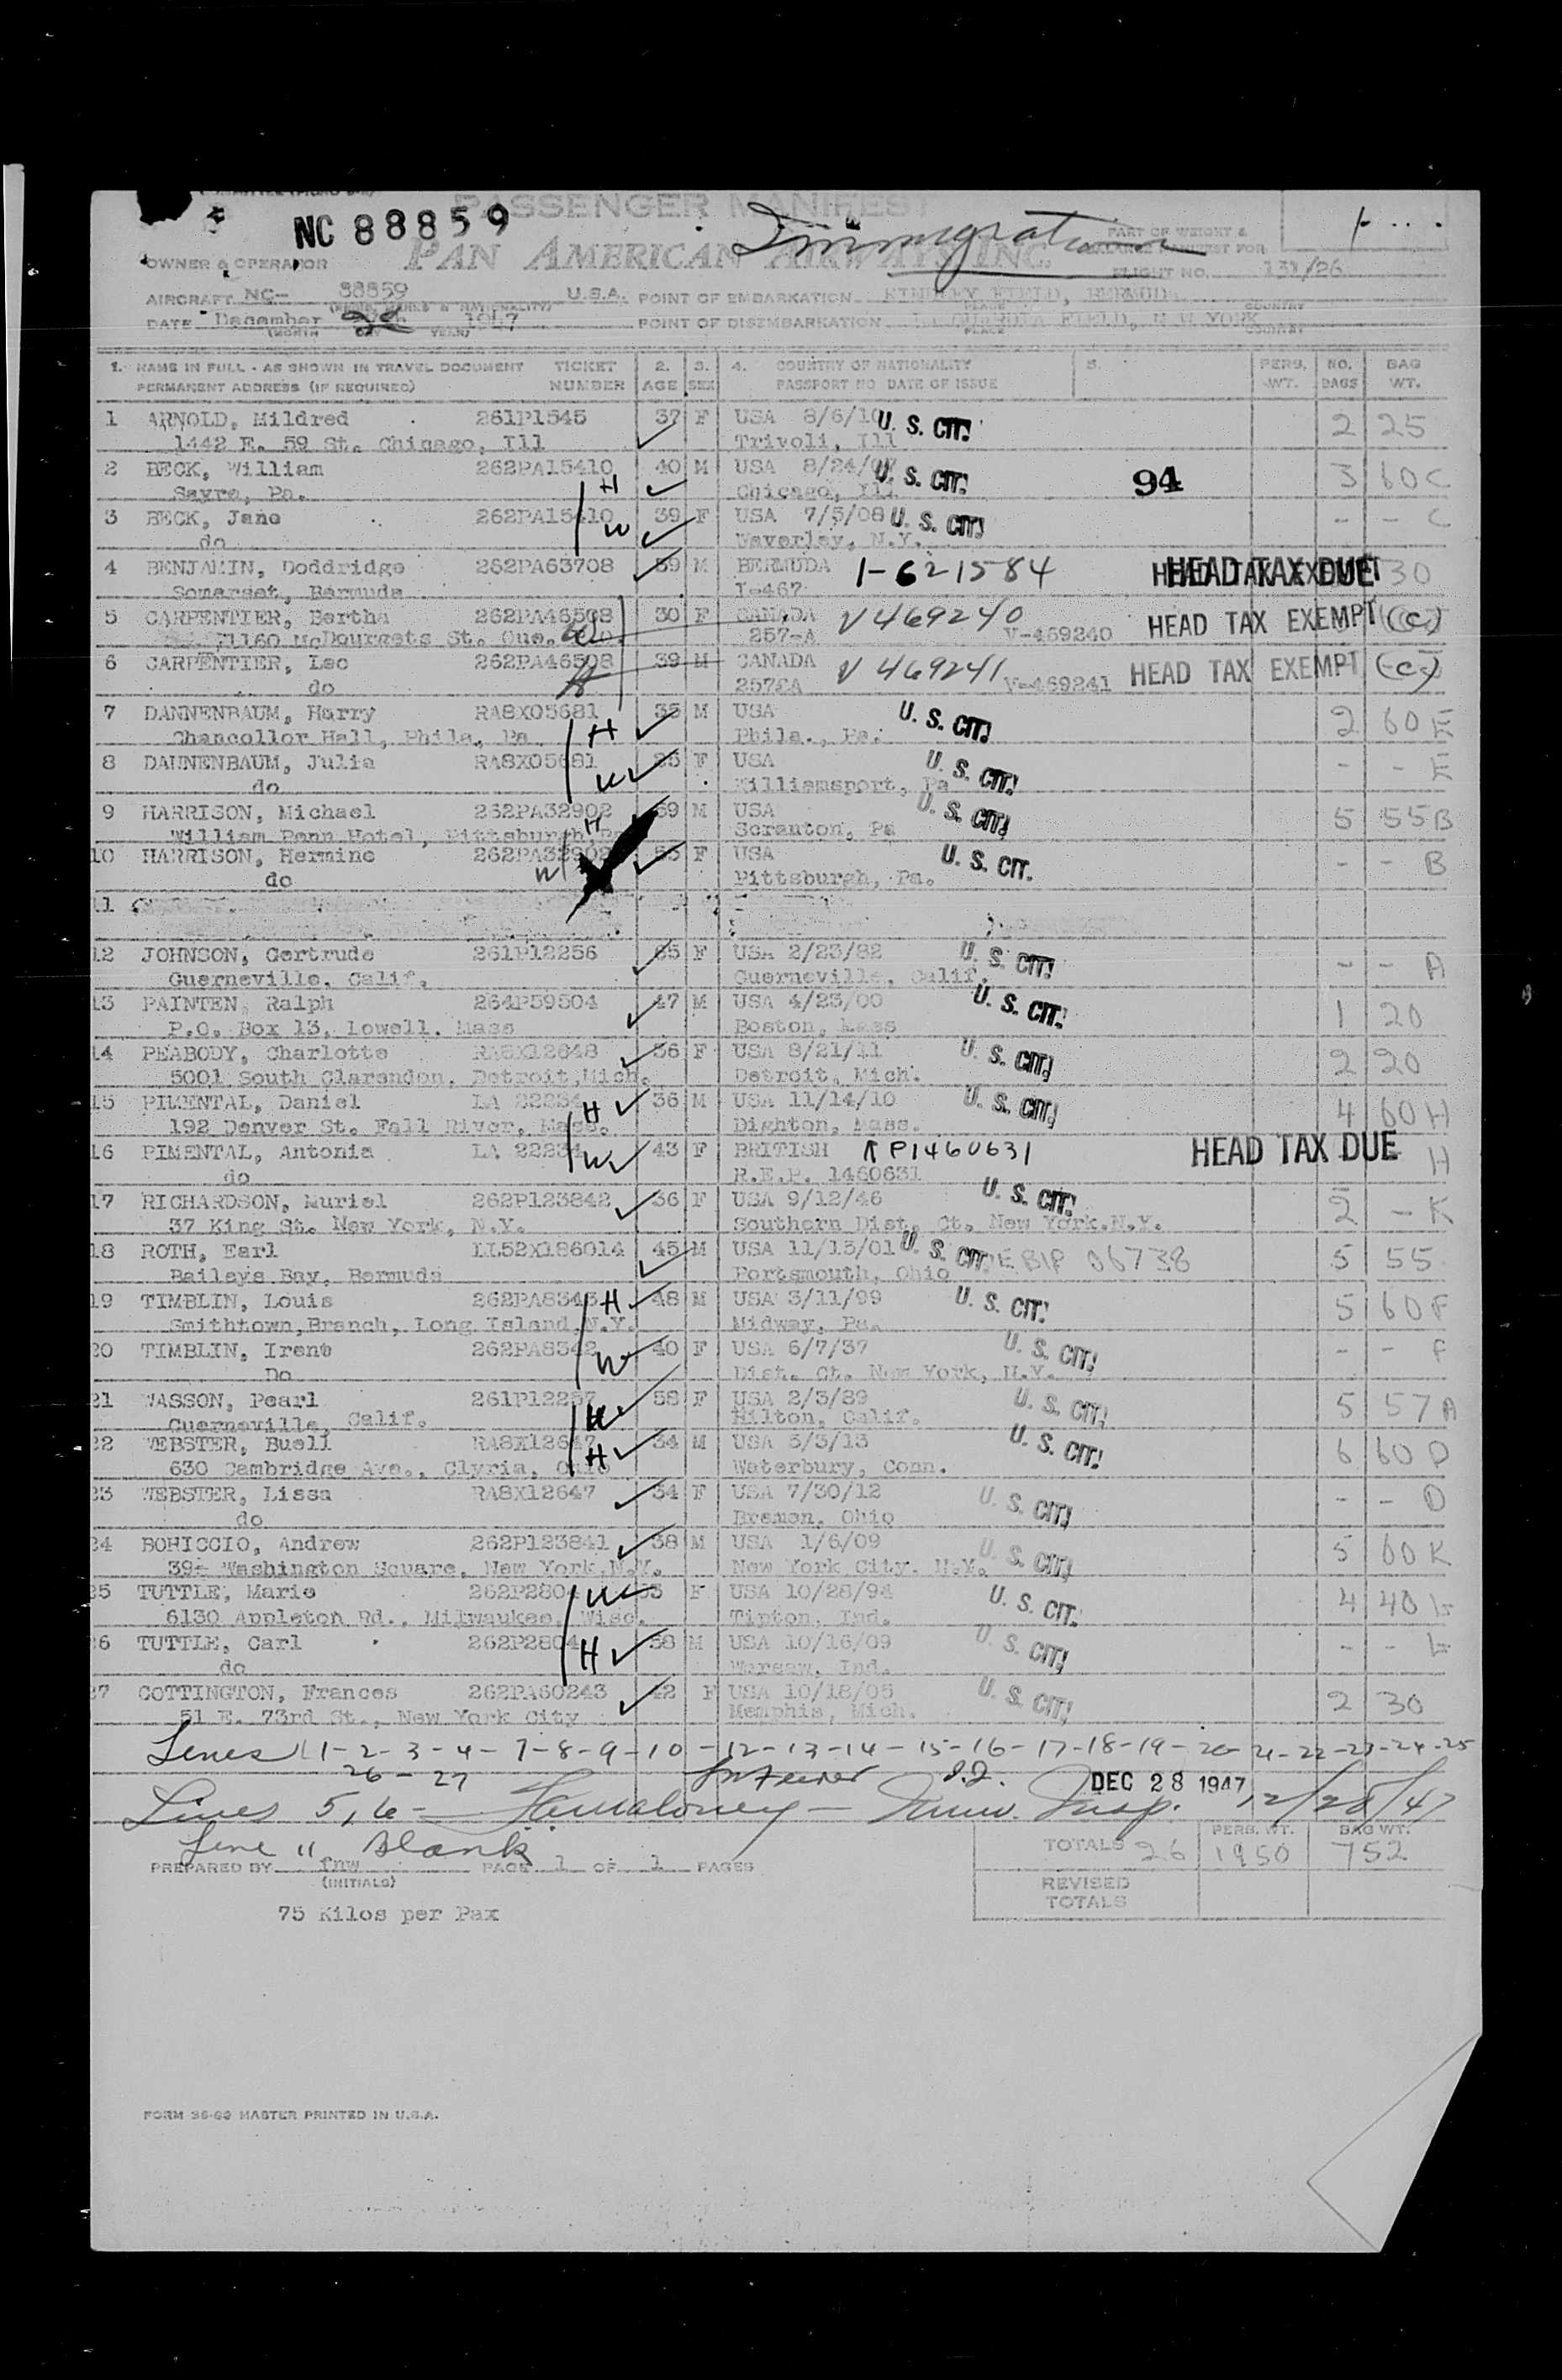 PASSENGER MANIFES
NC 88859
Immigration
PART OF WEIGHT &
OWNER & OPERATOR PAN AMERICAN AIRWAYS INC.
FLIGHT NO. 131/26
AIRCRAFT NC- 88859 U.S.A. POINT OF EMBARKATION KINDLEY FIELD, BERMUDA
DATE December 28 1947 POINT OF DISEMBARKATION LA GUARDIA FIELD, N W YORK
1. NAME IN FULL - AS SHOWN IN TRAVEL DOCUMENT TICKET 2. 3. 4. COUNTRY OF NATIONALITY 5. PERS. NO. BAG
PERMANENT ADDRESS (IF REQUIRED) NUMBER AGE SEX PASSPORT NO DATE OF ISSUE WT. BAGS WT.
1 ARNOLD, Mildred 261P1545 37 F USA 8/6/10 U. S. CIT. 2 25
1442 E. 59 St. Chicago, Ill Trivoli, Ill
2 BECK, William 262PA15410 40 M USA 8/24/07 U. S. CIT. 94 3 60 C
Sayre, Pa. H Chicago, Ill
3 BECK, Jane 262PA15410 39 F USA 7/5/08 U. S. CIT. - - C
do W Waverley, N.Y.
4 BENJAMIN, Doddridge 262PA63708 59 M BERMUDA 1-621584 HEAD TAX DUE 30
Somerset, Bermuda I-467
5 CARPENTIER, Bertha 262PA46508 30 F CANADA V 469240 HEAD TAX EXEMPT (C)
257-A V-469240
6 CARPENTIER, Leo 262PA46508 39 M CANADA V 469241 HEAD TAX EXEMPT (C)
do V-469241
7 DANNENBAUM, Harry RA8X05681 35 M USA U. S. CIT. 2 60 E
Chancellor Hall, Phila, Pa H Phila., Pa.
8 DANNENBAUM, Julia RA8X05681 F USA U. S. CIT. - - E
do W Williamsport, Pa
9 HARRISON, Michael 262PA32902 59 M USA U. S. CIT. 5 55 B
William Penn Hotel, Pittsburgh Pa H Scranton, Pa
10 HARRISON, Hermine 262PA32902 F USA U. S. CIT. - - B
do W Pittsburgh, Pa.
11
12 JOHNSON, Gertrude 261P12256 65 F USA 2/23/82 U. S. CIT. - - A
Guerneville, Calif. Guerneville, Calif.
13 PAINTEN, Ralph 264P59504 47 M USA 4/23/00 U. S. CIT. 1 20
P.O. Box 13, Lowell, Mass Boston, Mass
14 PEABODY, Charlotte RA8X12648 36 F USA 8/21/11 U. S. CIT. 2 20
5001 South Clarendon, Detroit,Mich. Detroit, Mich.
15 PIMENTAL, Daniel LA 22234 H 36 M USA 11/14/10 U. S. CIT. 4 60 H
192 Denver St. Fall River, Mass. Dighton, Mass.
16 PIMENTAL, Antonia LA 22234 W 43 F BRITISH RP1460631 HEAD TAX DUE H
do R.E.P. 1460631
17 RICHARDSON, Muriel 262P123842 36 F USA 9/12/46 U. S. CIT. 2 - K
37 King St. New York, N.Y. Southern Dist. Ct. New York.N.Y.
18 ROTH, Earl LL52X186014 45 M USA 11/13/01 U. S. CIT. 06738 5 55
Baileys Bay, Bermuda Portsmouth, Ohio
19 TIMBLIN, Louis 262PA8343 H 48 M USA 3/11/99 U. S. CIT. 5 60 F
Smithtown,Branch, Long Island,N.Y. Midway, Pa.
20 TIMBLIN, Irene 262PA8342 W 40 F USA 6/7/37 U. S. CIT. - - F
Do Dist. Ct. New York, N.Y.
21 WASSON, Pearl 261P12257 58 F USA 2/3/89 U. S. CIT. 5 57 A
Guerneville, Calif. Hilton, Calif.
22 WEBSTER, Buell RA8X12647 34 M USA 3/3/13 U. S. CIT. 6 60 D
630 Cambridge Ave., Clyria, Ohio H Waterbury, Conn.
23 WEBSTER, Lissa RA8X12647 34 F USA 7/30/12 U. S. CIT. - - D
do Bremen, Ohio
24 BOHICCIO, Andrew 262P123841 38 M USA 1/6/09 U. S. CIT. 5 60 K
39½ Washington Square, New York,N.Y. New York City. N.Y.
25 TUTTLE, Marie 262P2804 W 53 F USA 10/28/94 U. S. CIT. 4 40
6130 Appleton Rd., Milwaukee, Wisc. Tipton, Ind.
26 TUTTLE, Carl 262P2804 58 M USA 10/16/09 U. S. CIT. - -
do H Warsaw, Ind.
27 COTTINGTON, Frances 262PA60243 42 F USA 10/18/05 U. S. CIT. 2 30
51 E. 73rd St., New York City Memphis, Mich.
Lines 1-2-3-4-7-8-9-10-12-13-14-15-16-17-18-19-20-21-22-23-24-25
26-27 DEC 28 1947
Lines 5,6 - Immi. Insp. 12/28/47
Line 11 Blank
TOTALS 26 PERS. WT. 1950 BAG WT. 752
PREPARED BY fnw PAGE 1 OF 1 PAGES
(INITIALS) REVISED
TOTALS
75 Kilos per Pax
FORM 36-62 MASTER PRINTED IN U.S.A.